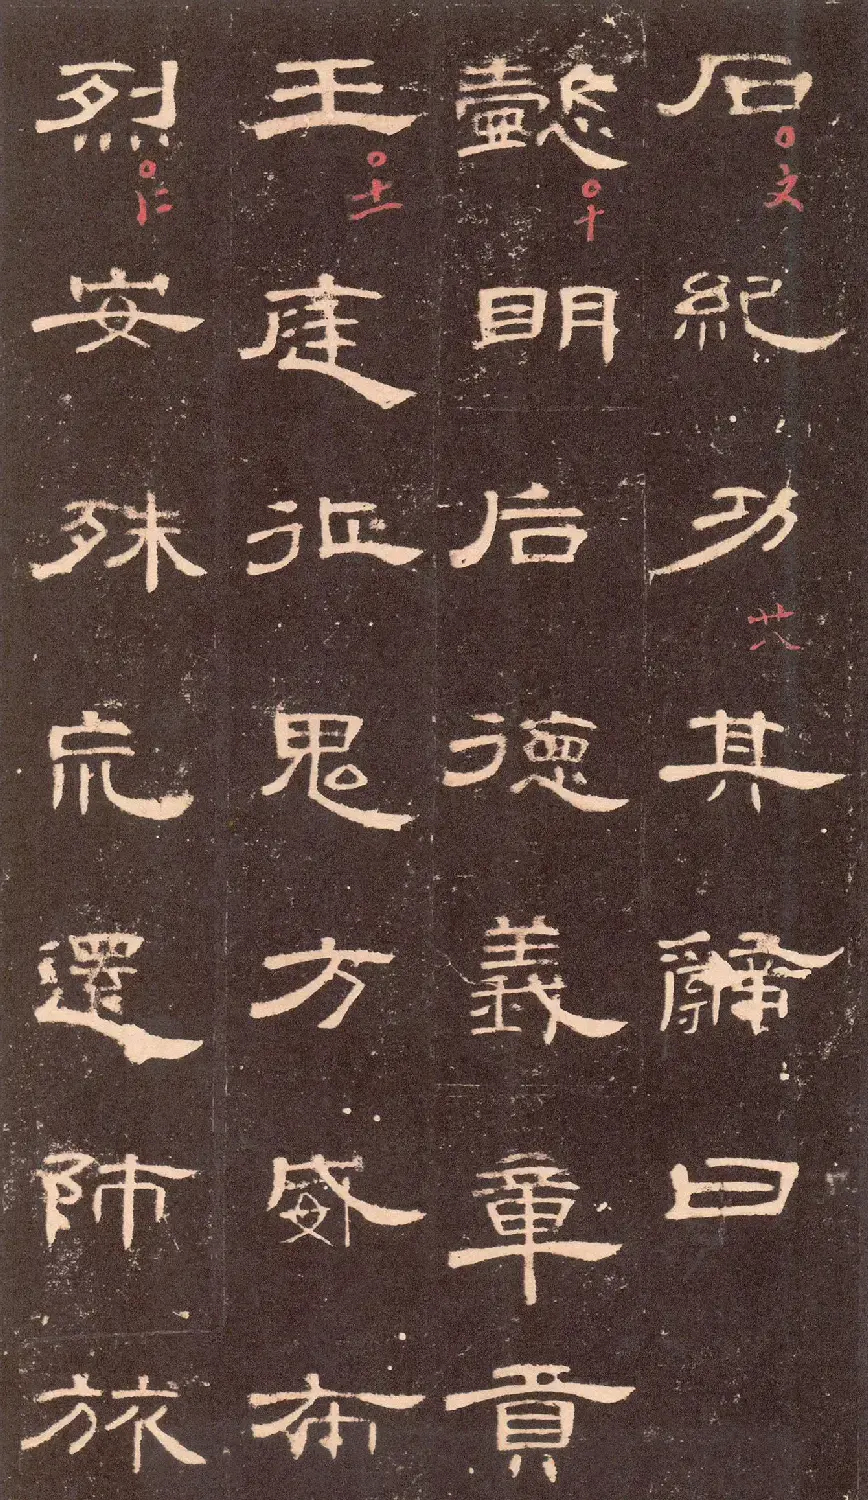 石紀功其辭曰
懿明后德義章貢
王庭征鬼方威布
烈安殊巟還師旅
文
廿八
十
十一